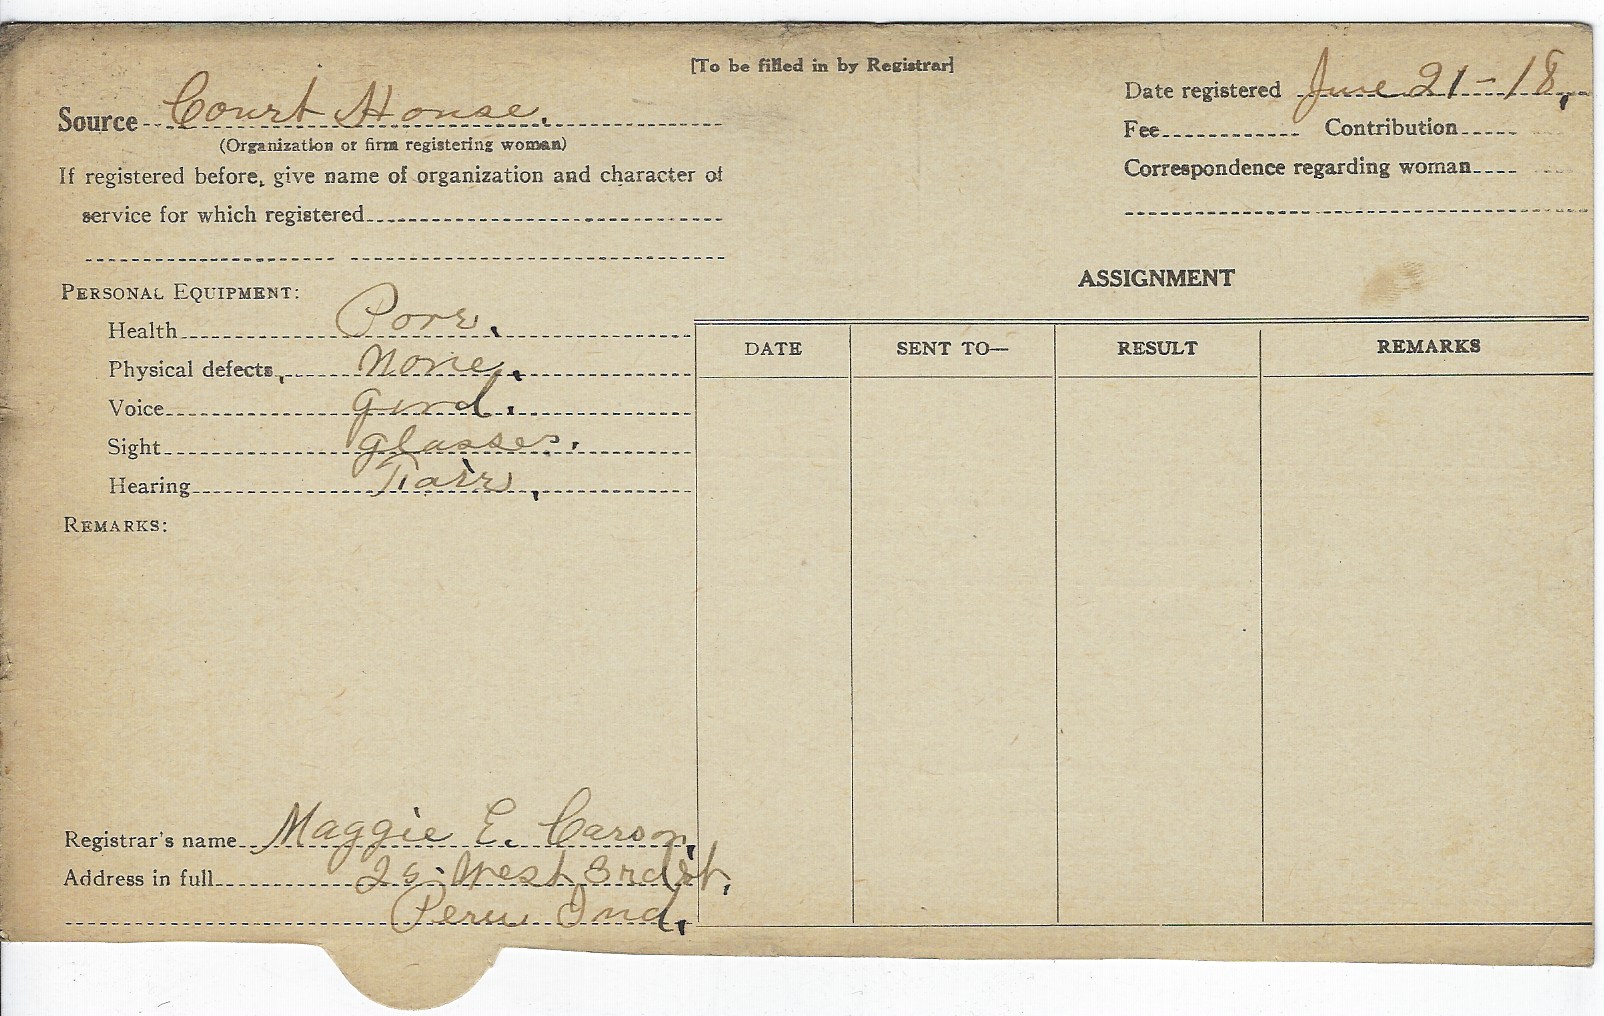 [To be filled in by Registrar]
Source Court House.
(Organization or firm registering woman)
If registered before, give name of organization and character of
service for which registered
Date registered June 21-18.
Fee Contribution
Correspondence regarding woman
PERSONAL EQUIPMENT:
Health Pore.
Physical defects, None.
Voice Good.
Sight glasses.
Hearing Fair.
REMARKS:
ASSIGNMENT
DATE SENT TO— RESULT REMARKS
Registrar's name Maggie E. Carson.
Address in full West 3rd St.
Peru Ind.